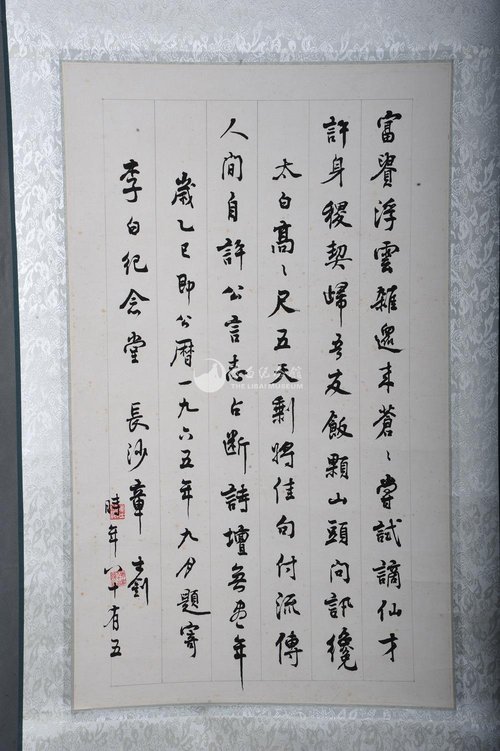 富貴浮雲雜遝来蒼〻嘗試謫仙才
許身稷契歸吾友飯顆山頭問訊纔
太白高〻尺五天剩將佳句付流傳
人間自許公言志占斷詩壇無盡年
歲乙巳即公曆一九六五年九月題寄
李白紀念堂 長沙章士釗
時年八十有五
THE LIBAI MUSEUM